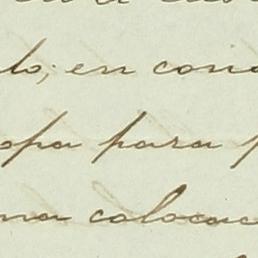 lo; en cond
opa para p
na colocac